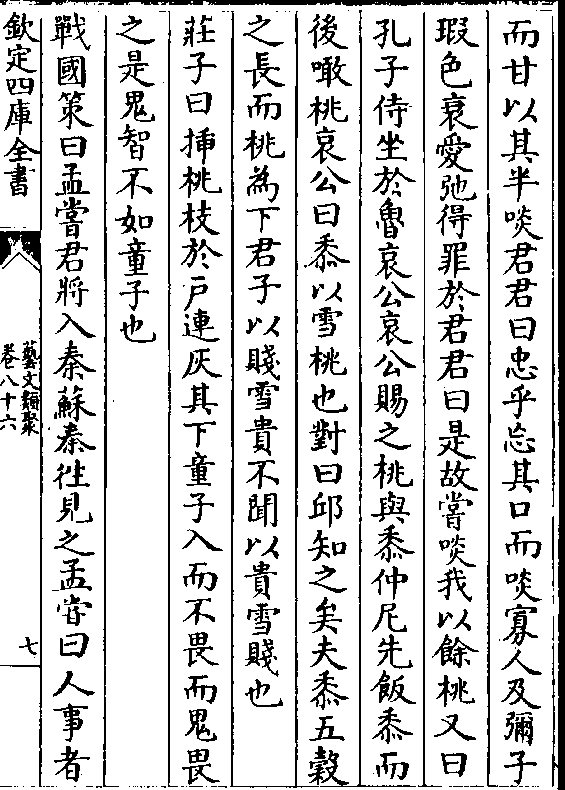 而甘以其半啖君君曰忠乎忘其口而啖寡人及彌子
瑕色衰愛弛得罪於君君曰是故嘗啖我以餘桃又曰
孔子侍坐於魯哀公哀公賜之桃與黍仲尼先飯黍而
後噉桃哀公曰黍以雪桃也對曰邱知之矣夫黍五榖
之長而桃為下君子以賤雪貴不聞以貴雪賤也
莊子曰揷桃枝於戸連灰其下童子入而不畏而鬼畏
之是鬼智不如童子也
戰國策曰孟嘗君將入秦蘇秦徃見之孟嘗曰人事者
欽定四庫全書
藝文類聚
卷八十六
七